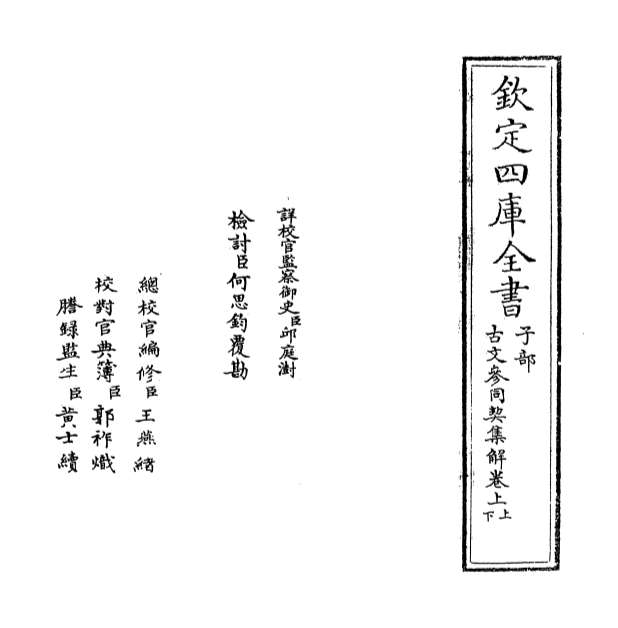 欽定四庫全書
子部
古文參同契集解卷上上下
詳校官監察御史臣邱庭澍
檢討臣何思鈞覆勘
總校官編修臣王燕緒
校對官典簿臣郭祚熾
謄錄監生臣黃士續